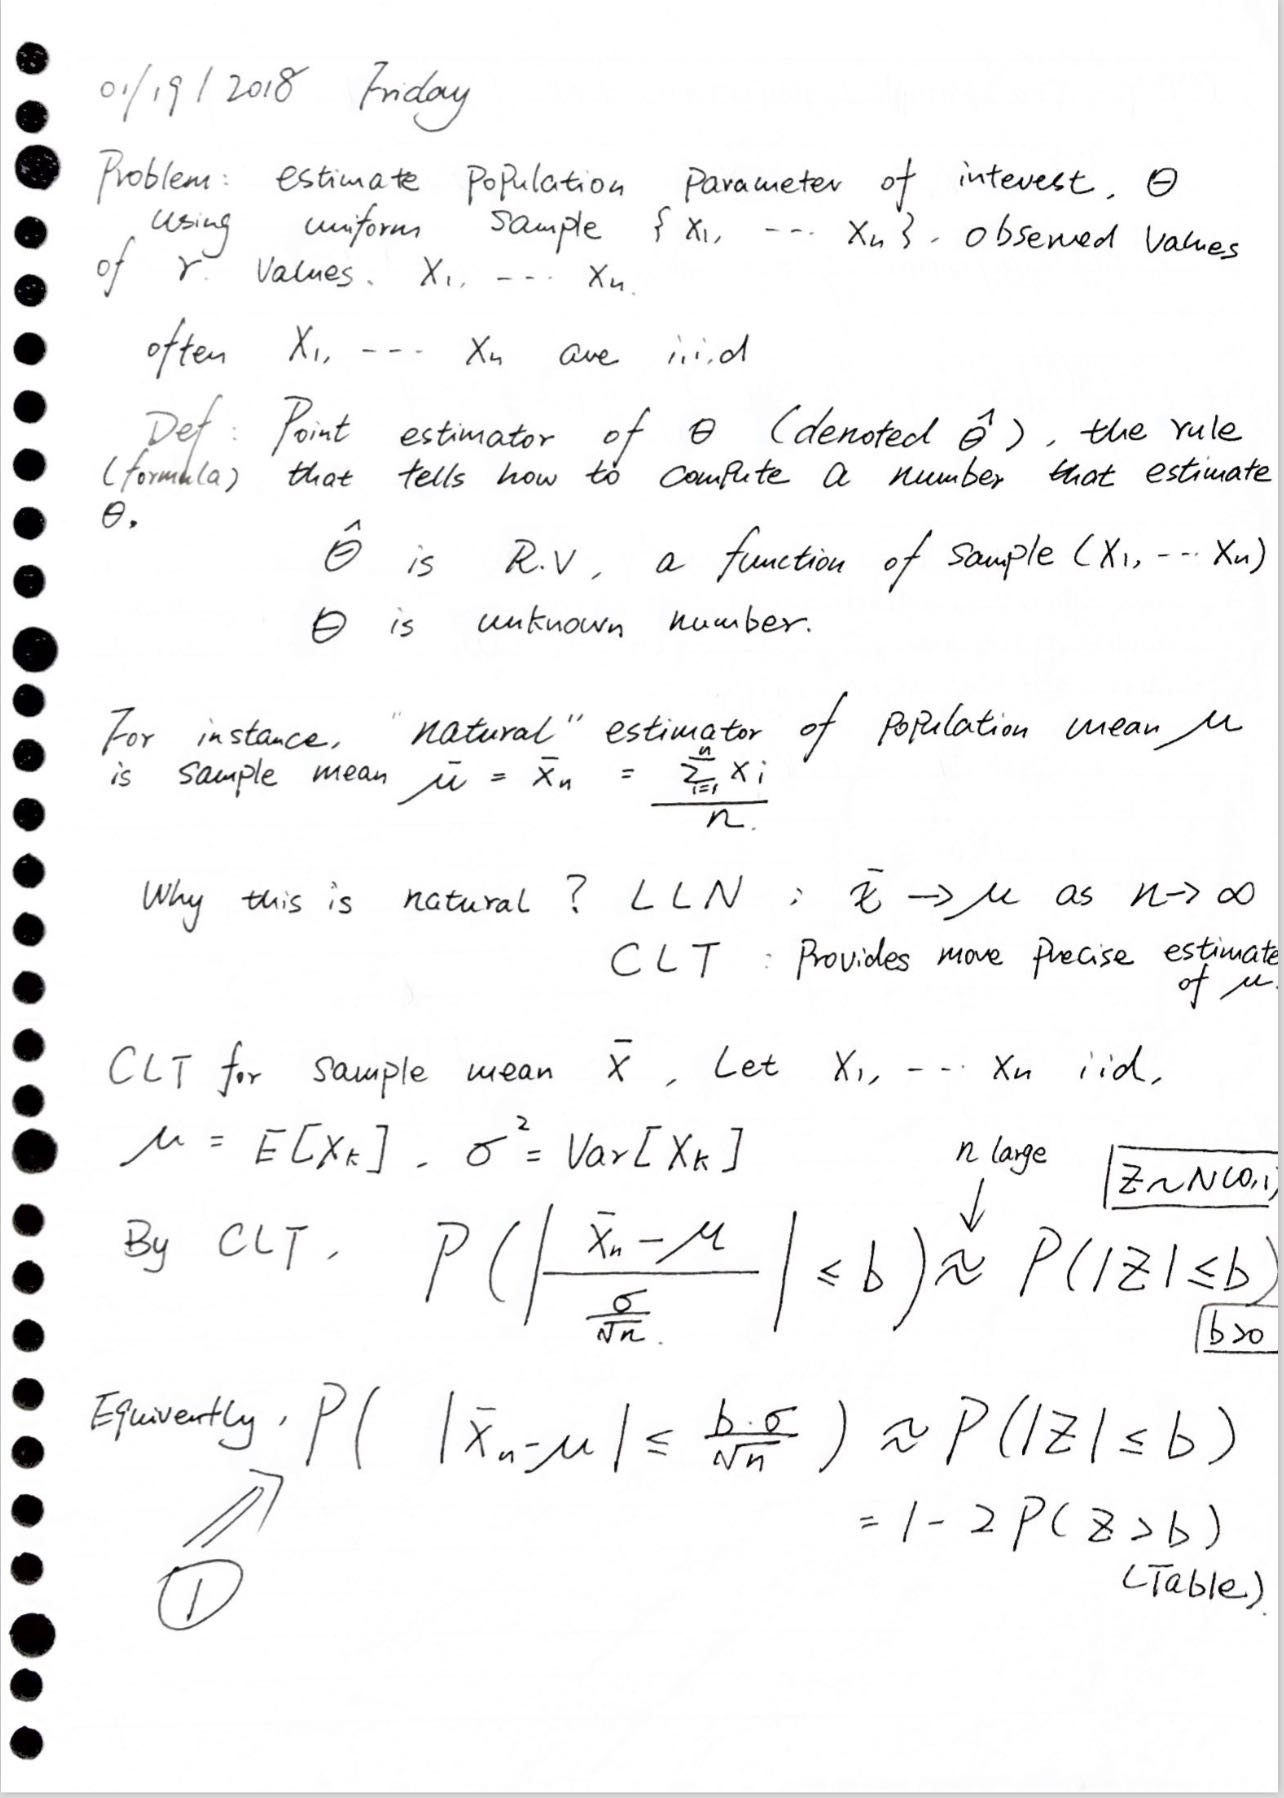 01/19/2018 Friday
Problem: estimate population parameter of interest, θ
using uniform sample {x₁, --- xₙ}. observed values
of r. values. X₁, --- Xₙ.
often X₁, --- Xₙ are i.i.d
Def: Point estimator of θ (denoted θ̂), the rule
(formula) that tells how to compute a number that estimate
θ.
θ̂ is R.V, a function of sample (X₁, --- Xₙ)
θ is unknown number.
For instance, "natural" estimator of population mean μ
is sample mean μ̄ = x̄ₙ = (∑ᵢ₌₁ⁿ xᵢ)/n.
Why this is natural? LLN : x̄ → μ as n→∞
CLT : Provides more precise estimate
of μ.
CLT for sample mean x̄, Let X₁, --- Xₙ iid,
μ = E[Xₖ]. σ² = Var[Xₖ]
n large
Z~N(0,1)
By CLT, P(|(x̄ₙ-μ)/(σ/√n)| ≤ b) ≈ P(|Z| ≤ b)
b>0
Equivently, P( |x̄ₙ-μ| ≤ b·σ/√n ) ≈ P(|Z| ≤ b)
= 1 - 2P(Z>b)
(Table).
①